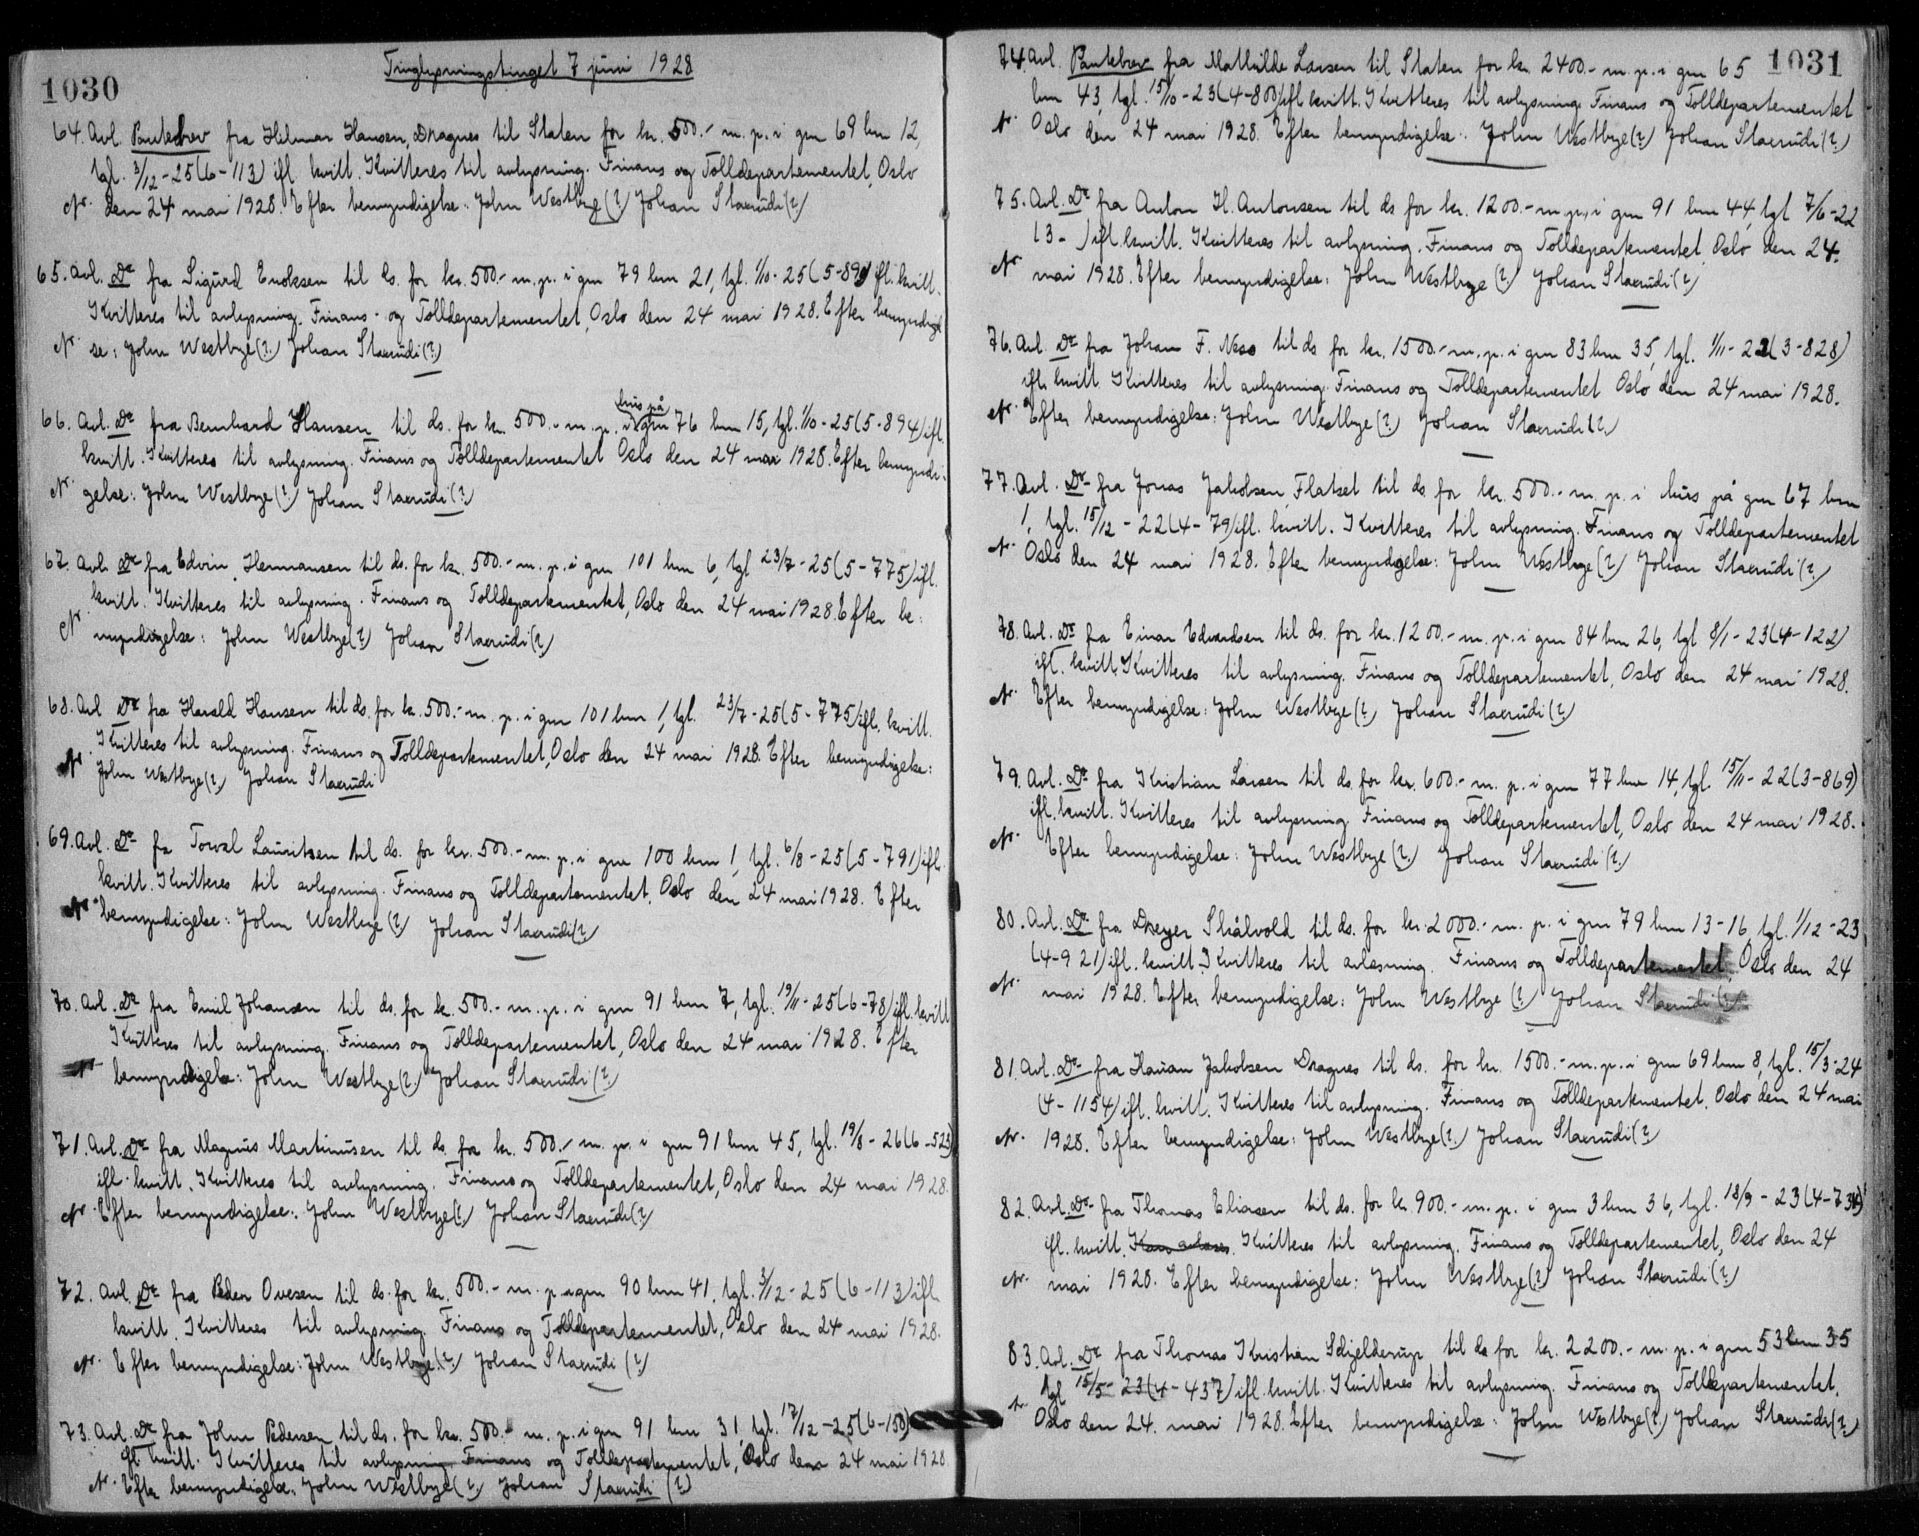 1030
Tinglysningstinget 7 juni 1928
64. Avl. Pantebrev fra Helmar Hansen, Dragnes til Staten for kr. 500.- m. p. i gnr 69 bnr 12,
tgl. 3/12-25 (6-113) ifl. kvitt. Kvitteres til avlysning. Finans og Tolldepartementet, Oslo
Nr. den 24 mai 1928. Efter bemyndigelse: John Westbye (?) Johan Staxrudi (?)
65. Avl. Do fra Sigurd Enoksen til ds. for kr. 500.- m. p. i gnr 79 bnr 21, tgl. 1/10-25 (5-89) ifl. kvitt.
Kvitteres til avlysning. Finans- og Tolldepartementet, Oslo den 24 mai 1928. Efter bemyndigel
Nr. se: John Westbye (?) Johan Staxrudi (?)
hus på
66. Avl. Do fra Bernhard Hansen til ds. for kr. 500.- m. p. i gnr 76 bnr 15, tgl. 1/10-25 (5-894) ifl.
kvitt. Kvitteres til avlysning. Finans og Tolldepartementet Oslo den 24 mai 1928. Efter bemyndi-
Nr. gelse: John Westbye (?) Johan Staxrudi (?)
67. Avl. Do fra Edvin Hermansen til ds. for kr. 500.- m. p. i gnr 101 bnr 6, tgl 23/7-25 (5-775) ifl.
kvitt. Kvitteres til avlysning. Finans og Tolldepartementet, Oslo den 24 mai 1928. Efter be-
Nr. myndigelse: John Westbye (?) Johan Staxrudi (?)
68. Avl Do fra Harald Hansen til ds. for kr. 500.- m. p. i gnr 101 bnr 1, tgl. 23/7-25 (5-775) ifl. kvitt.
Kvitteres til avlysning. Finans og Tolldepartementet, Oslo den 24 mai 1928. Efter bemyndigelse:
Nr. John Westbye (?) Johan Staxrudi
69. Avl. Do fra Torval Lauritsen til ds. for kr. 500.- m. p. i gnr 100 bnr 1, tgl. 6/8-25 (5-791) ifl.
kvitt. Kvitteres til avlysning. Finans og Tolldepartementet, Oslo den 24 mai 1928. Efter
Nr. bemyndigelse: John Westbye (?) Johan Staxrudi (?)
70. Avl. Do fra Emil Johansen til ds. for kr. 500.- m. p. i gnr 91 bnr 7, tgl. 19/11-25 (6-78) ifl. kvitt
Kvitteres til avlysning. Finans og Tolldepartementet, Oslo den 24 mai 1928. Efter
Nr. bemyndigelse: John Westbye (?) Johan Staxrudi (?)
71. Avl. Do fra Magnus Martinusen til ds. for kr. 500.- m. p. i gnr 91 bnr 45, tgl. 19/8-26 (6-523)
ifl. kvitt. Kvitteres til avlysning. Finans og Tolldepartementet, Oslo den 24 mai 1928.
Nr. Efter bemyndigelse: John Westbye (?) Johan Staxrudi (?)
72. Avl. Do fra Peder Ovesen til ds. for kr. 500.- m. p. i gnr 90 bnr 41, tgl. 3/12-25 (6-113) ifl
kvitt. Kvitteres til avlysning. Finans og Tolldepartementet, Oslo den 24 mai 1928.
Nr. Efter bemyndigelse: John Westbye (?) Johan Staxrudi (?)
73. Avl. Do fra John Pedersen til ds. for kr. 500.- m. p. i gnr 91 bnr 31, tgl. 17/12-25 (6-150)
ifl. kvitt. Kvitteres til avlysning Finans og Tolldepartementet, Oslo den 24 mai 1928
Nr. Efter bemyndigelse. John Westbye (?) Johan Staxrudi (?)
1031
74. Avl. Pantebrev fra Mathilde Larsen til Staten for kr. 2400.- m. p. i gnr 65
bnr 43, tgl. 15/10-23 (4-800) ifl. kvitt. Kvitteres til avlysning. Finans og Tolldepartementet
Nr. Oslo den 24 mai 1928. Efter bemyndigelse: John Westbye (?) Johan Staxrudi (?)
75. Avl. Do fra Anton H. Antonsen til ds for kr. 1200.- m. p. i gnr 91 bnr 44, tgl 7/6-22
(3- ) ifl. kvitt. Kvitteres til avlysning. Finans og Tolldepartementet, Oslo den 24.
Nr mai 1928. Efter bemyndigelse: John Westbye (?) Johan Staxrudi (?)
76. Avl. Do fra Johan F. Ness til ds for kr. 1500.- m. p. i gnr 83 bnr 35, tgl. 1/11-22 (3-828)
ifl. kvitt Kvitteres til avlysning. Finans og Tolldepartementet Oslo den 24 mai 1928.
Nr. Efter bemyndigelse: John Westbye (?) Johan Staxrudi (?)
77. Avl. Do fra Jonas Jakobsen, Flatset til ds for kr. 500.- m. p. i hus på gnr 67 bnr
1, tgl. 15/12-22 (4-79) ifl. kvitt. Kvitteres til avlysning. Finans og Tolldepartementet
Nr. Oslo den 24 mai 1928. Efter bemyndigelse: John Westbye (?) Johan Staxrudi (?)
78. Avl. Do fra Einar Edvardsen til ds. for kr. 1200.- m. p. i gnr 84 bnr 26, tgl 8/1-23 (4-122)
ifl. kvitt. Kvitteres til avlysning. Finans og Tolldepartementet, Oslo den 24 mai 1928.
Nr. Efter bemyndigelse: John Westbye (?) Johan Staxrudi (?)
79. Avl. Do fra Kristian Larsen til ds. for kr. 600.- m. p. i gnr 77 bnr 14, tgl. 15/11-22 (3-869)
ifl. kvitt. Kvitteres til avlysning Finans og Tolldepartementet, Oslo den 24 mai 1928.
Nr. Efter bemyndigelse: John Westbye (?) Johan Staxrudi (?)
80. Avl. Do fra Dreyer Skålvold til ds. for kr. 2000.- m. p. i gnr 79 bnr 13-16, tgl. 1/12-23
(4-921) ifl. kvitt. Kvitteres til avlæsning. Finans og Tolldepartementet, Oslo den 24
Nr. mai 1928. Efter bemyndigelse: John Westbye (?) Johan Staxrudi (?)
81. Avl. Do fra Hauan Jakobsen Dragnes til ds. for kr. 1500.- m. p. i gnr 69 bnr 8, tgl. 15/3-24
(4-1154) ifl. kvitt. Kvitteres til avlysning. Finans og Tolldepartementet, Oslo den 24 mai
Nr. 1928. Efter bemyndigelse: John Westbye (?) Johan Staxrudi (?)
82. Avl. Do fra Thomas Eliasen til ds. for kr. 900.- m. p. i gnr 3 bnr 36, tgl. 18/9-23 (4-731)
ifl. kvitt. Kan avlæses. Kvitteres til avlysning. Finans og Tolldepartementet, Oslo den 24
Nr. mai 1928. Efter bemyndigelse: John Westbye (?) Johan Staxrudi (?)
83. Avl. Do fra Thomas Kristian Schjelderup til ds for kr. 2200.- m. p. i gnr 53 bnr 35
tgl 15/5-23 (4-437) ifl. kvitt. Kvitteres til avlysning. Finans og Tolldepartementet,
Nr. Oslo den 24. mai 1928. Efter bemyndigelse: John Westbye (?) Johan Staxrudi (?)